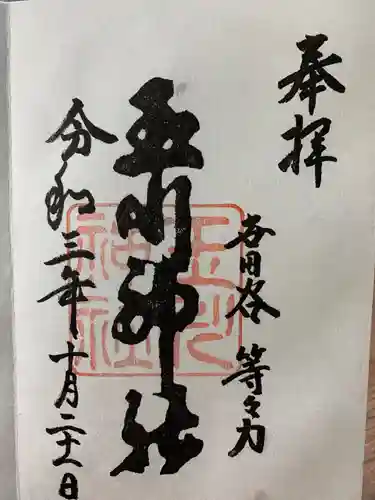 奉拝
世田谷 等々力
玉川神社
玉川神社
令和三年十月二十一日